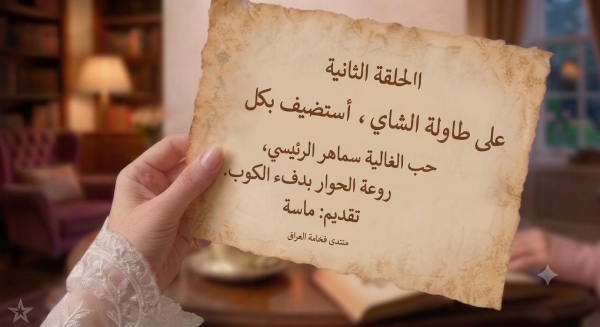 االحلقة الثانية
على طاولة الشاي ، أستضيف بكل
حب الغالية سماهر الرئيسي،
روعة الحوار بدفء الكوب.
تقديم: ماسة
منتدى فخامة العراق